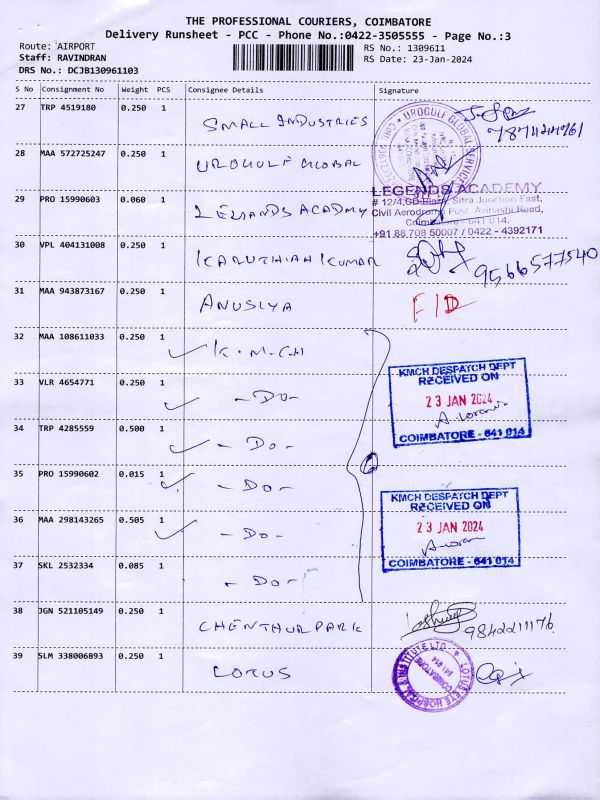 THE PROFESSIONAL COURIERS, COIMBATORE
Delivery Runsheet - PCC - Phone No.:0422-3505555 - Page No.:3
Route: AIRPORT
RS No.: 1309611
Staff: RAVINDRAN
RS Date: 23-Jan-2024
DRS No.: DCJB130961103
S No Consignment No Weight PCS Consignee Details Signature
27 TRP 4519180 0.250 1 SMALL INDUSTRIES
28 MAA 572725247 0.250 1 UROGULF GLOBAL
29 PRO 15990603 0.060 1 LEGANDS ACADMY
LEGENDS ACADEMY
# 12/4,GD Plaza, Sitra Junction East,
Civil Aerodrome Post, Avinashi Road,
Coimbatore - 641 014.
+91 88 708 50007 / 0422 - 4392171
30 VPL 404131008 0.250 1 KARUTHIAH KUMAR 9566577540
31 MAA 943873167 0.250 1 ANUSIYA F/D
32 MAA 108611033 0.250 1 K.M.C.H
33 VLR 4654771 0.250 1 - Do -
KMCH DESPATCH DEPT
RECEIVED ON
23 JAN 2024
COIMBATORE - 641 014
34 TRP 4285559 0.500 1 - Do -
35 PRO 15990602 0.015 1 - Do -
36 MAA 298143265 0.505 1 - Do -
KMCH DESPATCH DEPT
RECEIVED ON
23 JAN 2024
COIMBATORE - 641 014
37 SKL 2532334 0.085 1 - Do -
38 JGN 521105149 0.250 1 CHENTHUR PARK 9842211176
39 SLM 338006893 0.250 1 LOTUS
LOTUS EYE HOSPITAL & INSTITUTE LTD
COIMBATORE
641 014